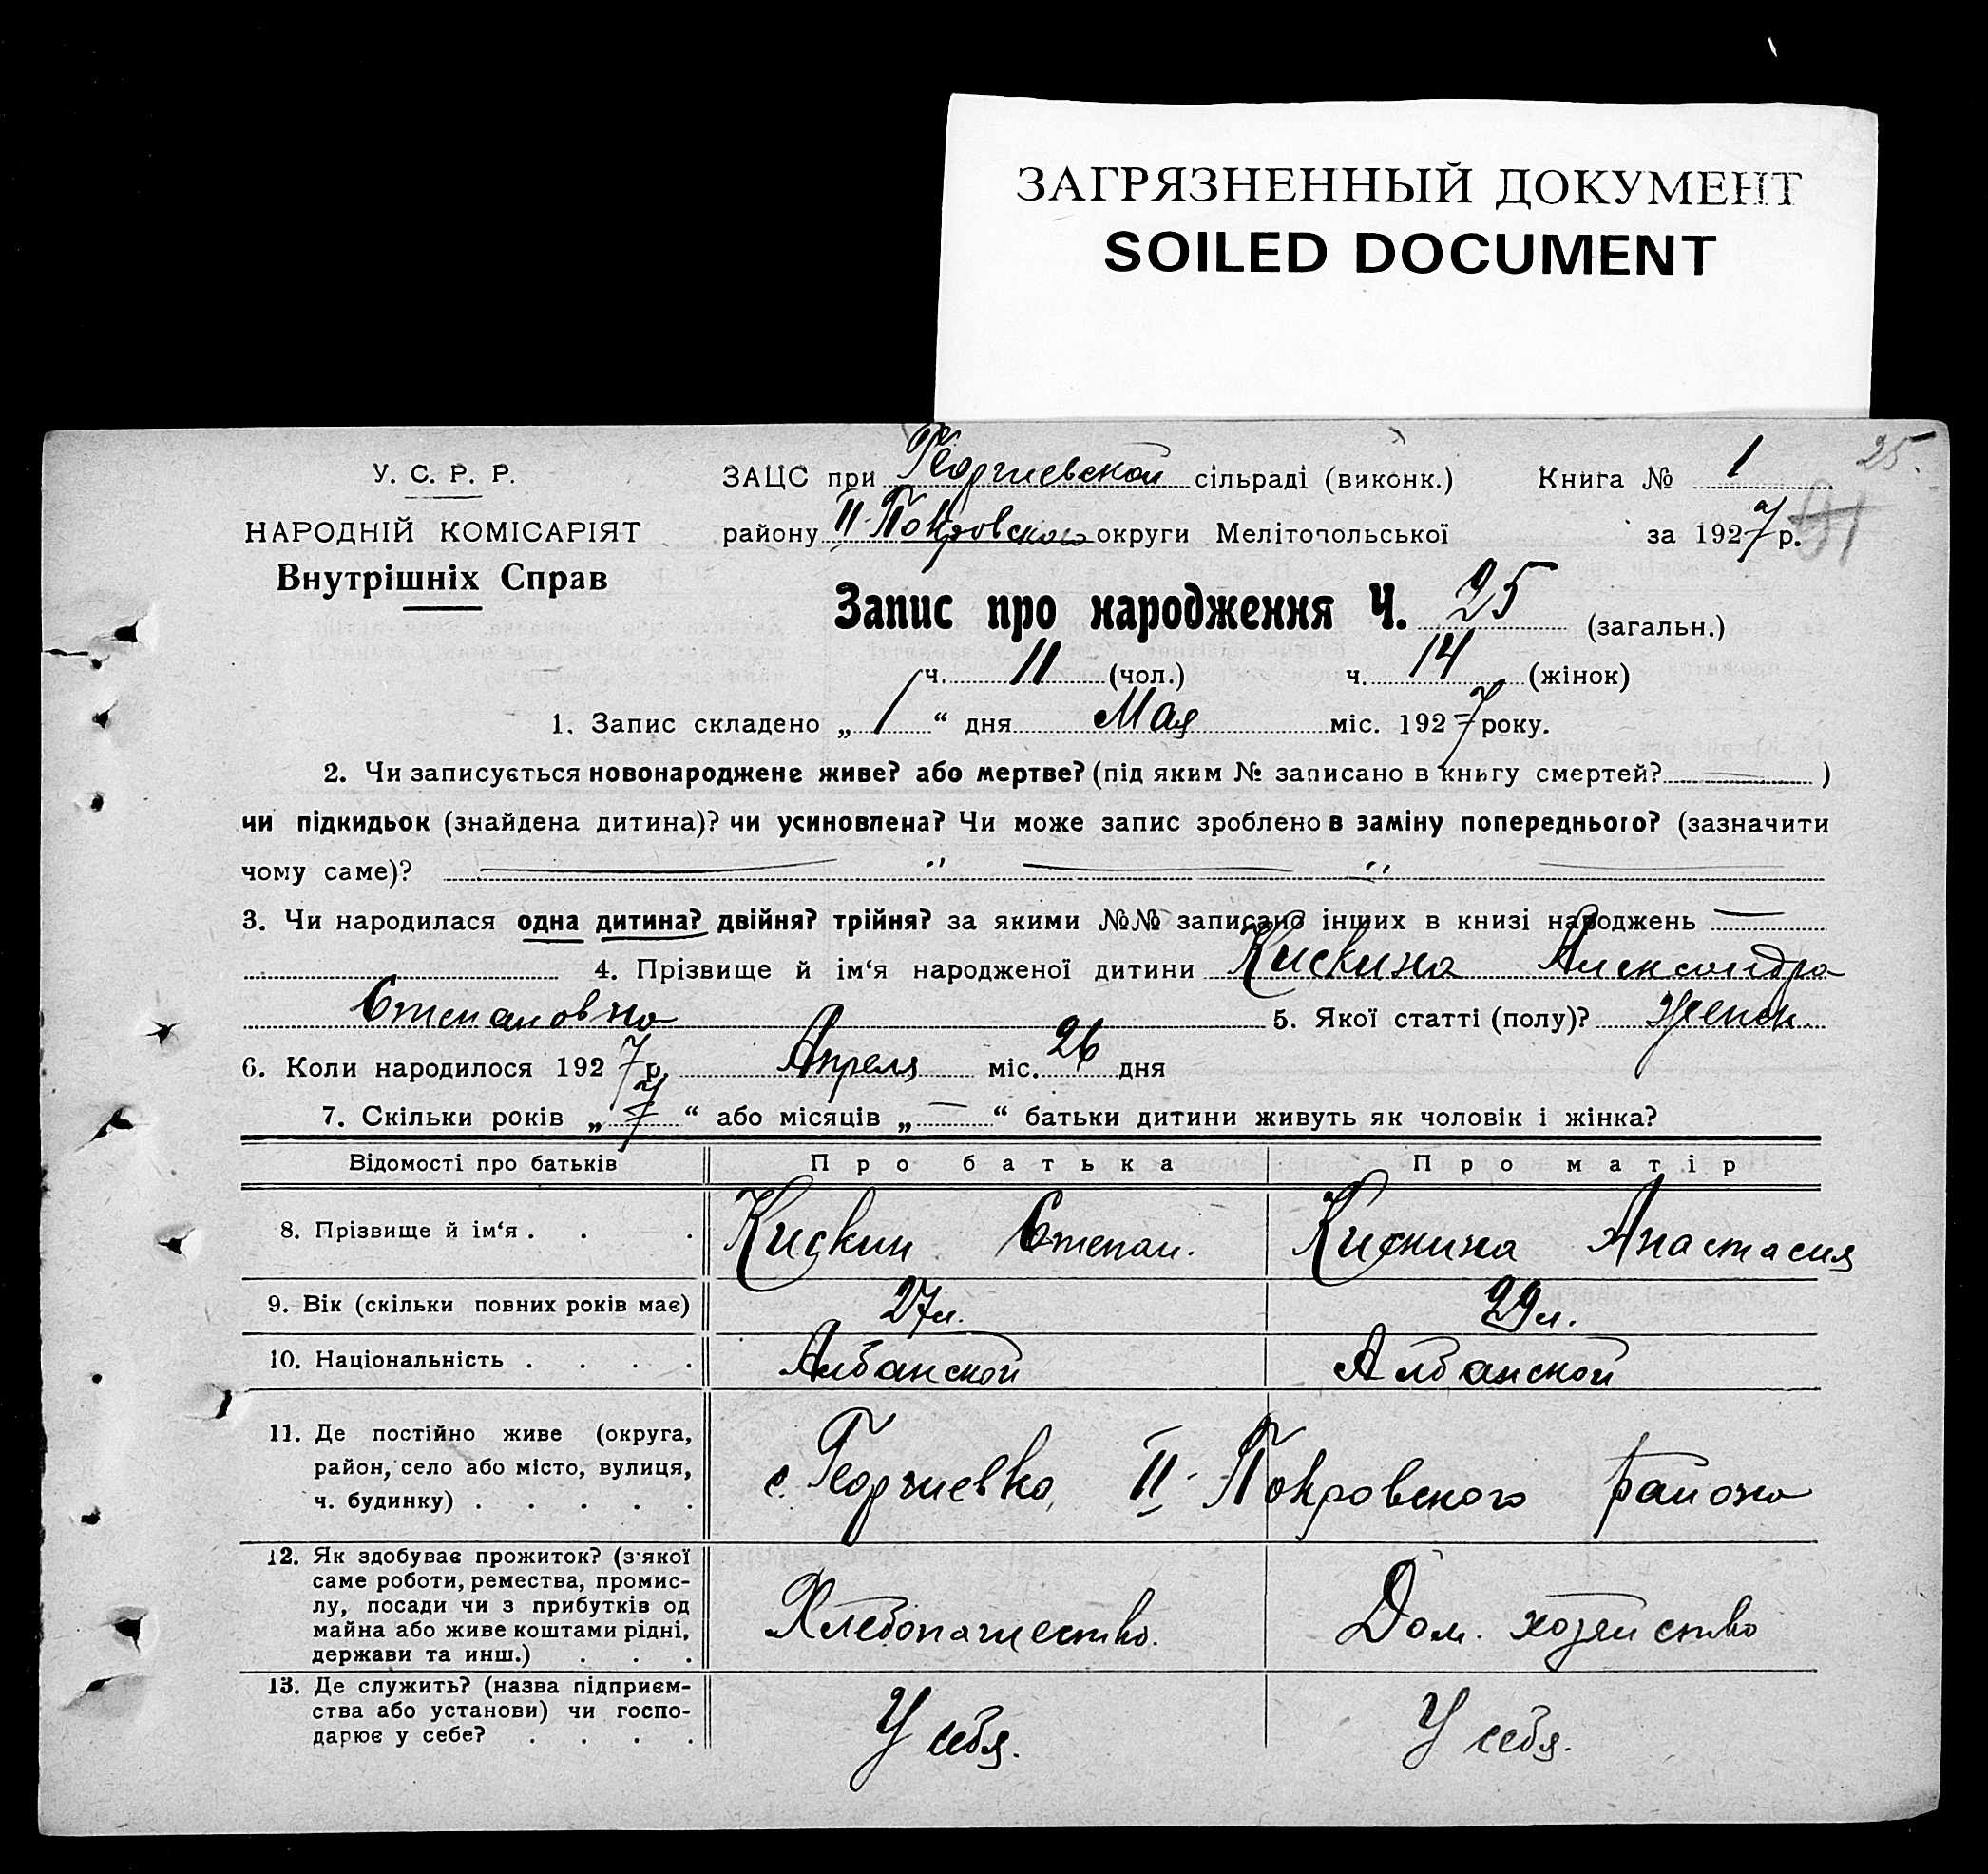 ЗАГРЯЗНЕННЫЙ ДОКУМЕНТ
SOILED DOCUMENT
25.
У. С. Р. Р.
ЗАЦС при Георгиевской сільраді (виконк.) Книга № 1
НАРОДНІЙ КОМІСАРІЯТ
району II Покровского округи Мелітопольської за 1927 р.
Внутрішніх Справ
Запис про народження Ч. 25 (загальн.)
ч. 11 (чол.) ч. 14 (жінок)
1. Запис складено „ 1 “ дня Мая міс. 1927 року.
2. Чи записується новонароджене живе? або мертве? (під яким № записано в книгу смертей? — )
чи підкидьок (знайдена дитина)? чи усиновлена? Чи може запис зроблено в заміну попереднього? (зазначити
чому саме)? — „ — „ —
3. Чи народилася одна дитина? двійня? трійня? за якими №№ записано інших в книзі народжень —
4. Прізвище й ім‘я народженої дитини Кискина Александра
Степановна 5. Якої статті (полу)? женск.
6. Коли народилося 1927 р. Апреля міс. 26 дня
7. Скільки років „ 7 “ або місяців „ — “ батьки дитини живуть як чоловік і жінка?
Відомості про батьків Про батька Про матір
8. Прізвище й ім‘я . . . Кискин Степан. Кискина Анастасия
9. Вік (скільки повних років має) 27 л. 29 л.
10. Національність . . . . Албанской Албанской
11. Де постійно живе (округа,
район, село або місто, вулиця,
ч. будинку) . . . . . с. Георгиевка, II Покровского района
12. Як здобуває прожиток? (з'якої
саме роботи, ремества, промис-
лу, посади чи з прибутків од
майна або живе коштами рідні,
держави та инш.) . . . Хлебопашество. Дом. хозяйство
13. Де служить? (назва підприєм-
ства або установи) чи госпо-
дарює у себе? . . . . У себя. У себя.